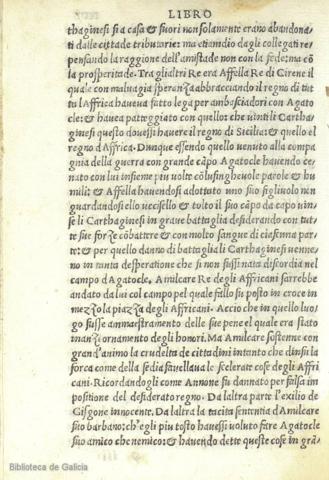 LIBRO
thaginesi si a casa & fuori non solamente erano abandona-
ti dalle cittade tributarie: ma etiamdio dagli collegati re
pensando la raggione dell'amistade non con la fede: ma cō
la prosperitade. Tra gli altri Re era Affella Re di Cirene il
quale con maluagia speranza abbracciando il regno di tut
tu l'Affrica haueua fatto lega per ambasciadori con Agato
cle: & haueua patteggiato con quello: che uinti li Cartha
ginesi questo douessi hauere il regno di Sicilia: & quello el
regno d'Affrica. Dunque essendo quello uenuto alla compa
gnia della guerra con grande cāpo Agatocle hauendo ce
nato con lui insieme piu uolte cō lusingheuole parole & hu
mili: & Affella hauendosi adottato uno suo figliuolo non
guardandosi ello uccisello & tolto il suo cāpo da capo uin
se li Carthaginesi in graue battaglia desiderando con tut-
te sue forze cōbattere & con molto sangue di ciascuna par
te: & per quello danno di battagliali Carthaginesi uenne
no in tanta desperatione che si non fussi nata discordia nel
campo d'Agatocle, Amilcare Re degli Affricani sarrebbe
andato da lui col campo pel quale fallo fu posto in croce in
mezzo la piazza degli Affricani. Accio che in quello luo-
go fusse ammaestramento delle sue pene el quale era stato
inanzi ornamento degli honori. Ma Amilcare sostenne con
grand'animo la crudelta de cittadini intanto che dinsu la
forca come della sedia fauellaua le scelerate cose degli Affri
cani. Ricordandogli come Annone fu dannato per falsa im
positione del desiderato regno. Da laltra parte l'exilio de
Gisgone innocente. Da laltra la tacita sententia d'Amilcare
suo barbano: ch'egli piu tosto hauessi uoluto fare Agatocle
suo amico che nemico: & hauendo dette queste cose in grā-
Biblioteca de Galicia